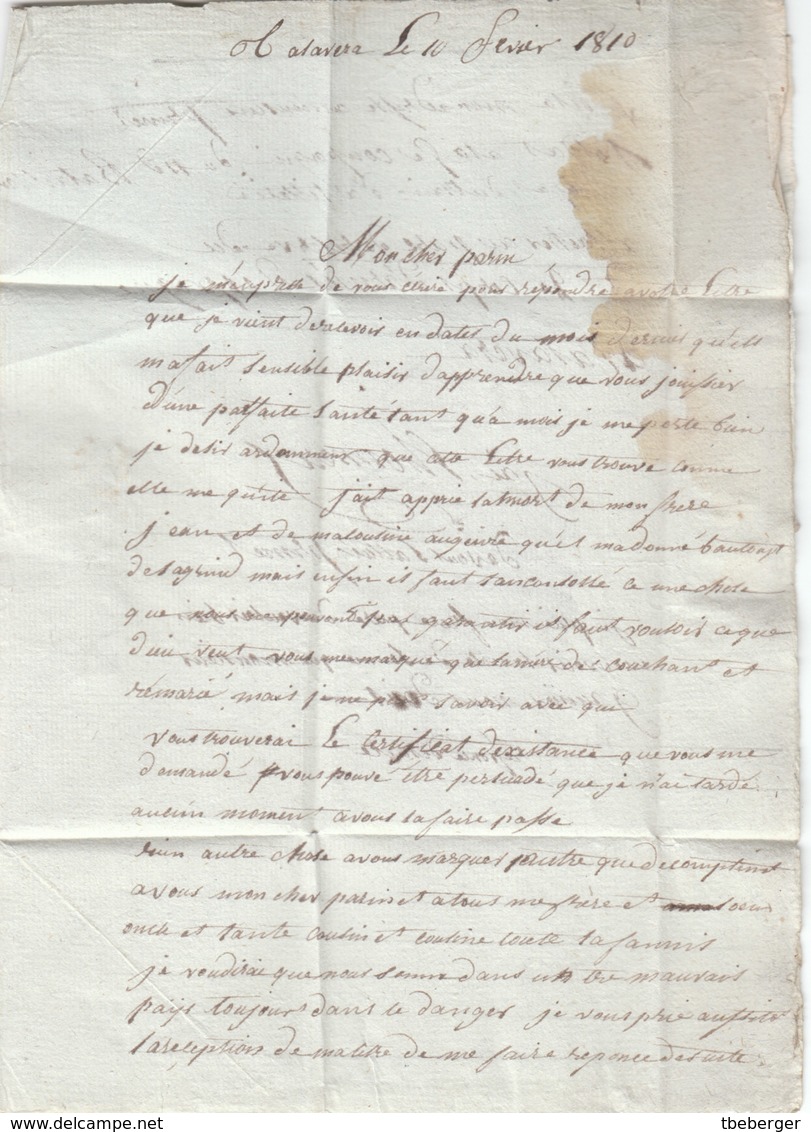 Talavera Le 10 fevrier 1810
Mon cher parin
je m'enprese de vous ecrire pour rependre a votre Lettre
que je vient derecevoir en dates du mois dernis qu'ell
mafait Sensible plaisir d'apprendre que vous jouissier
d'une parfaite Santé tant qu'a mois je me porte bien
je desir ardemment que cete Lettre vous trouve comme
elle me quite jait apprie lamort de mon frere
jean et de macousine qu'el madonné bautout
desagrind mais enfin il faut sanconsollé ce une chose
que nous ne peuvent pas garantir il faut vouloir ceque
dieu veut vous me marqué que lamere des couchant et
remarié mais je ne peut savoir avec que
vous trouverai Le Certificat d'existance que vous me
demandé vous pouvé être persuadé que je n'ai tardé
aucun moment avous lafaire passe
rien autre chose avous marquer pautre que de compliment
avous mon cher parin et atous mes frère et soeur
oncle et tante cousin et cousine toute lafamis
je voudirai que nous somme dans un tre mauvais
pays toujour dans le danger je vous prie aussitot
lareception de malitre de me faire reponce desuite.
tbeberger